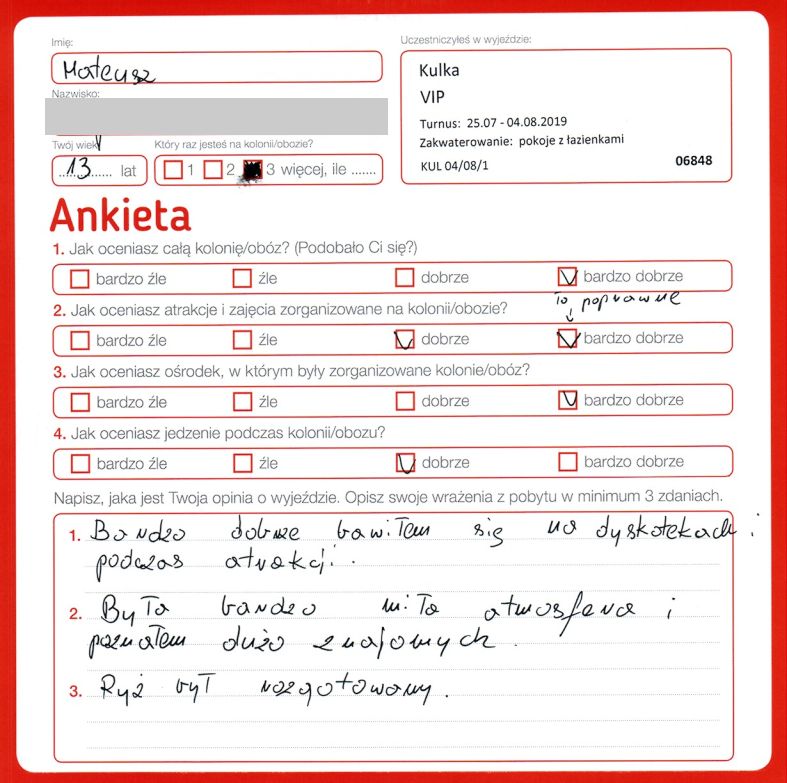 Imię:
Mateusz
Uczestniczyłeś w wyjeździe:
Kulka
VIP
Turnus: 25.07 - 04.08.2019
Zakwaterowanie: pokoje z łazienkami
KUL 04/08/1 06848
Nazwisko:
Twój wiek
13 lat
Który raz jesteś na kolonii/obozie?
1 2 3 więcej, ile .......
Ankieta
1. Jak oceniasz całą kolonię/obóz? (Podobało Ci się?)
bardzo źle źle dobrze bardzo dobrze
To poprawne
2. Jak oceniasz atrakcje i zajęcia zorganizowane na kolonii/obozie?
bardzo źle źle dobrze bardzo dobrze
3. Jak oceniasz ośrodek, w którym były zorganizowane kolonie/obóz?
bardzo źle źle dobrze bardzo dobrze
4. Jak oceniasz jedzenie podczas kolonii/obozu?
bardzo źle źle dobrze bardzo dobrze
Napisz, jaka jest Twoja opinia o wyjeździe. Opisz swoje wrażenia z pobytu w minimum 3 zdaniach.
1. Bardzo dobrze bawiłem się na dyskotekach i
podczas atrakcji.
2. Była bardzo miła atmosfera i
poznałem dużo znajomych.
3. Ryż był rozgotowany.